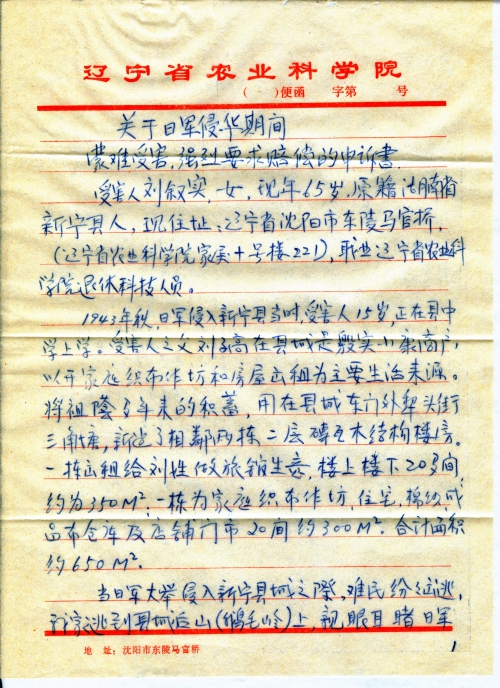 辽宁省农业科学院
( )便函 字第 号
关于日军侵华期间
蒙难受害,强烈要求赔偿的申诉书
受害人刘叙实,女,现年65岁,原籍湖南省
新宁县人,现住址:辽宁省沈阳市东陵马官桥,
(辽宁省农业科学院家属十号楼221),职业辽宁省农业科
学院退休科技人员。
1943年秋,日军侵入新宁县当时,受害人15岁,正在县中
学上学。受害人之父刘高在县城是殷实小康商户,
以开家庭织布作坊和房屋出租为主要生活来源。
将祖荫多年来的积蓄,用在县城东门外犁头街
三角塘,新造了相邻两栋二层砖瓦木结构楼房。
一栋出租给刘姓做旅馆生意,楼上楼下20多间,
约为350M²,一栋为家庭织布作坊,住宅,棉纱成
品布仓库及店铺门市20间约300M²。合计面积
约650M²。
当日军大举侵入新宁县城之际,难民纷纷逃,
我家逃到县城后山(鹅毛岭)上,亲眼目睹日军
地 址:沈阳市东陵马官桥
1